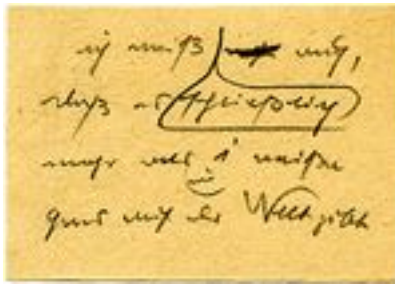 ich weiß auch,
daß es schließlich
mehr als 1 weiße
Gans auf der Welt gibt